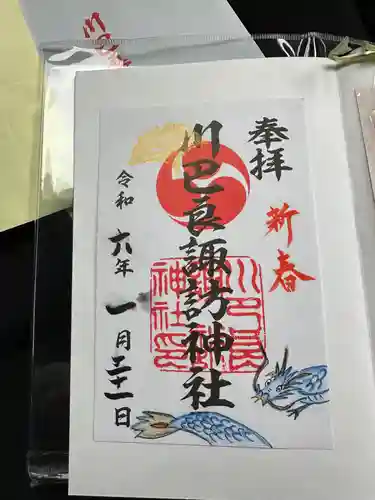 奉拝
新春
川巴良諏訪神社
川巴良
諏訪
神社印
令和六年一月二十一日